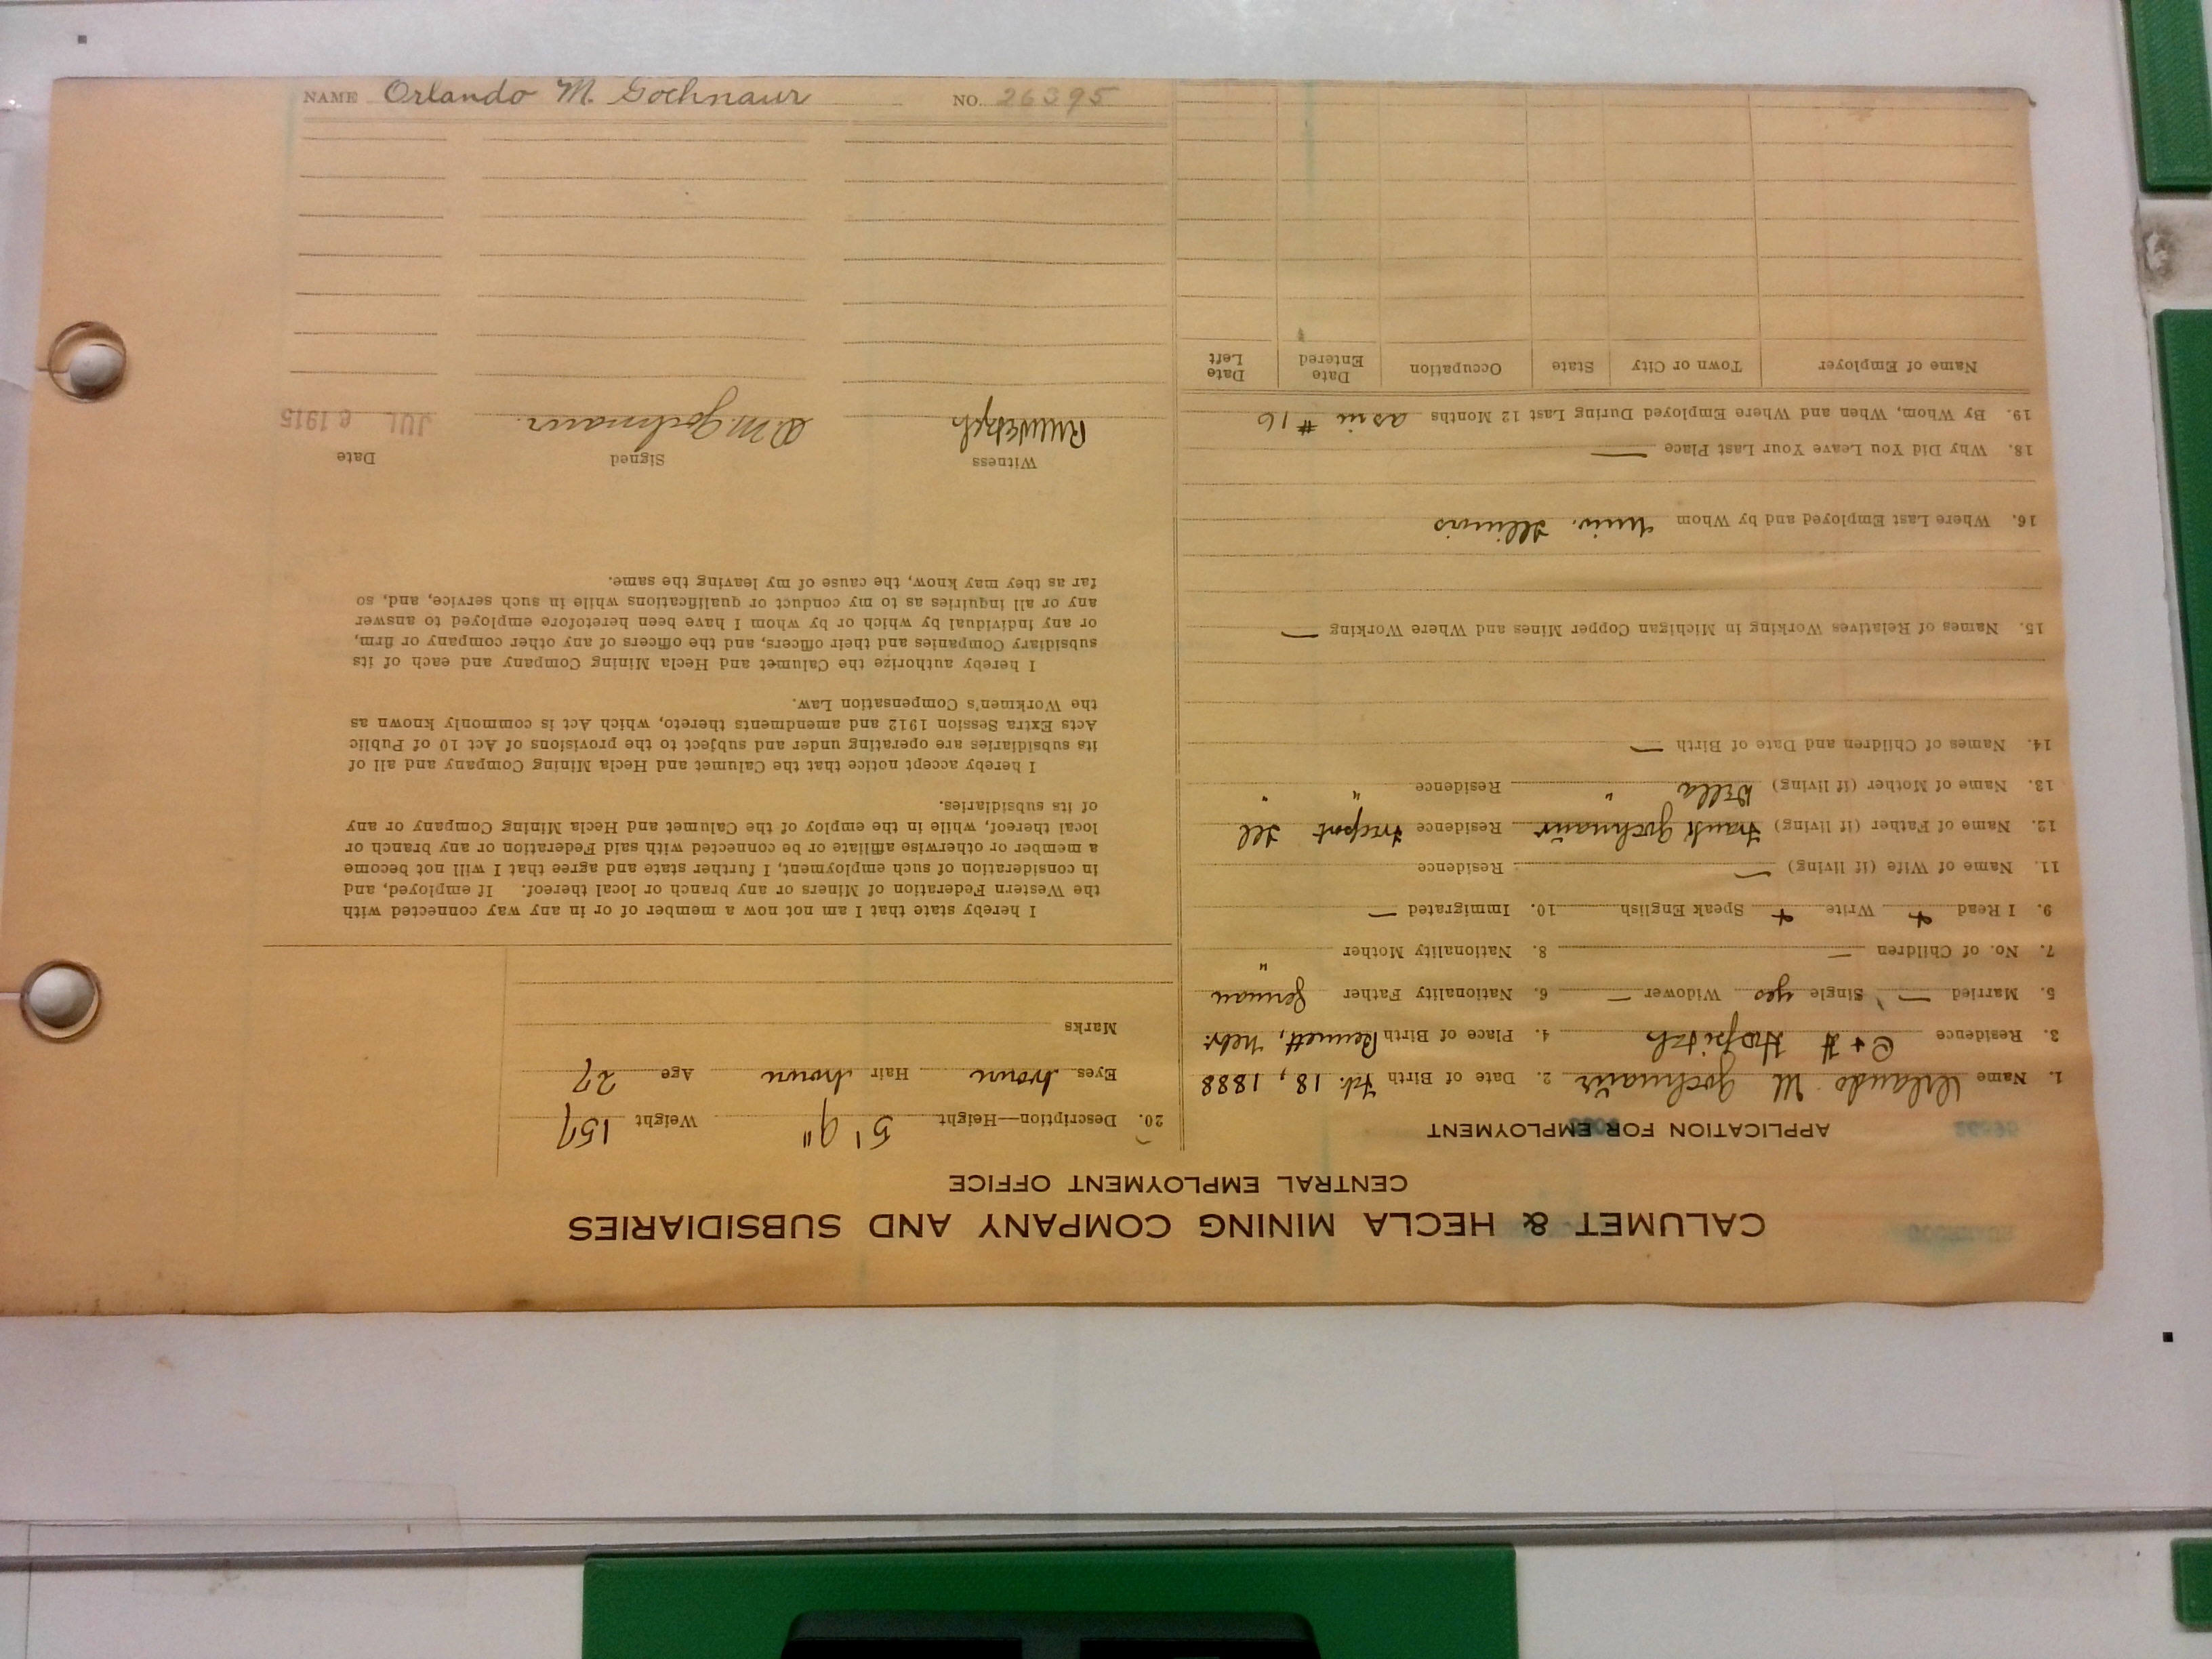 NAME Orlando M. Gochnaur NO. 26395
CALUMET & HECLA MINING COMPANY AND SUBSIDIARIES
CENTRAL EMPLOYMENT OFFICE
APPLICATION FOR EMPLOYMENT
1. Name Orlando M Gochnaur 2. Date of Birth Feb. 18, 1888
3. Residence C + H Hospital 4. Place of Birth Bennett, Nebr.
5. Married — Single yes Widower — 6. Nationality Father German
7. No. of Children — 8. Nationality Mother "
9. I Read + Write + Speak English 10. Immigrated —
11. Name of Wife (if living) — Residence
12. Name of Father (if living) Frank Gochnaur Residence Freeport Ill
13. Name of Mother (if living) Della " Residence " "
14. Names of Children and Date of Birth —
15. Names of Relatives Working in Michigan Copper Mines and Where Working —
16. Where Last Employed and by Whom Univ. Illinois
18. Why Did You Leave Your Last Place —
19. By Whom, When and Where Employed During Last 12 Months as in # 16
Name of Employer Town or City State Occupation Date Entered Date Left
20. Description—Height 5' 9" Weight 157
Eyes brown Hair brown Age 27
Marks
I hereby state that I am not now a member of or in any way connected with
the Western Federation of Miners or any branch or local thereof. If employed, and
in consideration of such employment, I further state and agree that I will not become
a member or otherwise affiliate or be connected with said Federation or any branch or
local thereof, while in the employ of the Calumet and Hecla Mining Company or any
of its subsidiaries.
I hereby accept notice that the Calumet and Hecla Mining Company and all of
its subsidiaries are operating under and subject to the provisions of Act 10 of Public
Acts Extra Session 1912 and amendments thereto, which Act is commonly known as
the Workmen's Compensation Law.
I hereby authorize the Calumet and Hecla Mining Company and each of its
subsidiary Companies and their officers, and the officers of any other company or firm,
or any individual by which or by whom I have been heretofore employed to answer
any or all inquiries as to my conduct or qualifications while in such service, and, so
far as they may know, the cause of my leaving the same.
Witness Signed Date
O M. Gochnaur. JUL 1915